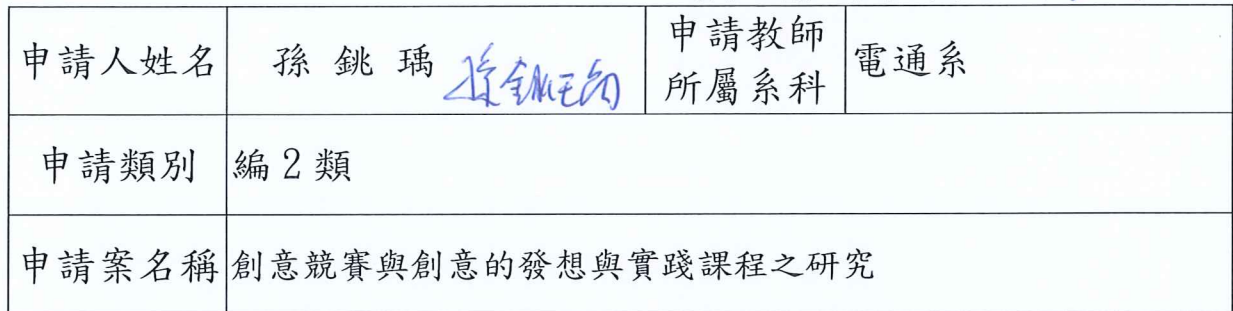 申請人姓名 孫銚瑀 孫銚瑀 申請教師
所屬系科 電通系
申請類別 編2類
申請案名稱 創意競賽與創意的發想與實踐課程之研究